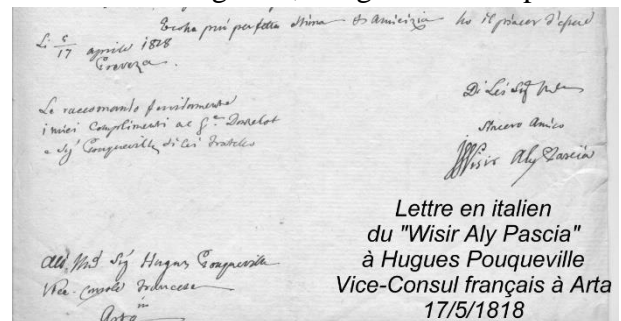 Colla più perfetta stima ed amicizia ho il piacer d'essere
Li 5/17 aprile 1818
Preveza.
Di Lei Sig.
Sincero Amico
Wisir Aly Pascià
Le raccomando
i miei complimenti al
e Sig.r Pouqueville di lei fratello
All. Sig Hugues Pouqueville
Vice-Console Francese
in
Arta
Lettre en italien
du "Wisir Aly Pascia"
à Hugues Pouqueville
Vice-Consul français à Arta
17/5/1818